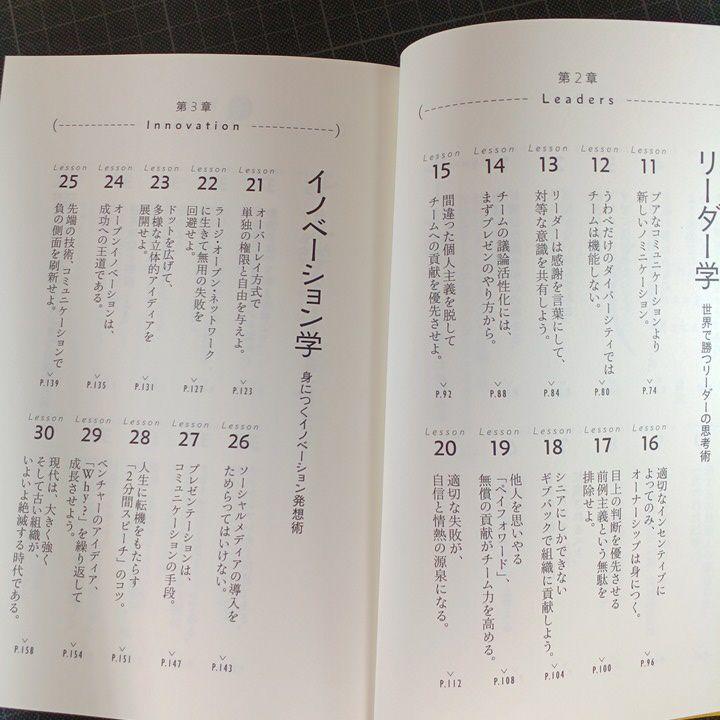 第2章
Leaders
リーダー学
世界で勝つリーダーの思考術
Lesson
11
プアなコミュニケーションより
新しいノミニケーション。
P.74
Lesson
12
うわべだけのダイバーシティでは
チームは機能しない。
P.80
Lesson
13
リーダーは感謝を言葉にして、
対等な意識を共有しよう。
P.84
Lesson
14
チームの議論活性化には、
まずプレゼンのやり方から。
P.88
Lesson
15
間違った個人主義を脱して
チームへの貢献を優先させよ。
P.92
Lesson
16
適切なインセンティブに
よってのみ、
オーナーシップは身につく。
P.96
Lesson
17
目上の判断を優先させる
前例主義という無駄を
排除せよ。
P.100
Lesson
18
シニアにしかできない
ギブバックで組織に貢献しよう。
P.104
Lesson
19
他人を思いやる
「ペイフォワード」、
無償の貢献がチーム力を高める。
P.108
Lesson
20
適切な失敗が、
自信と情熱の源泉になる。
P.112
第3章
Innovation
イノベーション学
身につくイノベーション発想術
Lesson
21
オーバーレイ方式で
単独の権限と自由を与えよ。
P.123
Lesson
22
ラージ・オープン・ネットワーク
に生きて無用の失敗を
回避せよ。
P.127
Lesson
23
ドットを広げて、
多様な立体的アイディアを
展開せよ。
P.131
Lesson
24
オープンイノベーションは、
成功への王道である。
P.135
Lesson
25
先端の技術、コミュニケーションで
負の側面を刷新せよ。
P.139
Lesson
26
ソーシャルメディアの導入を
ためらってはいけない。
P.143
Lesson
27
プレゼンテーションは、
コミュニケーションの手段。
P.147
Lesson
28
人生に転機をもたらす
「2分間スピーチ」のコツ。
P.151
Lesson
29
ベンチャーのアイディア、
「Why?」を繰り返して
成長させよう。
P.154
Lesson
30
現代は、大きく強く
そして古い組織が、
いよいよ絶滅する時代である。
P.158